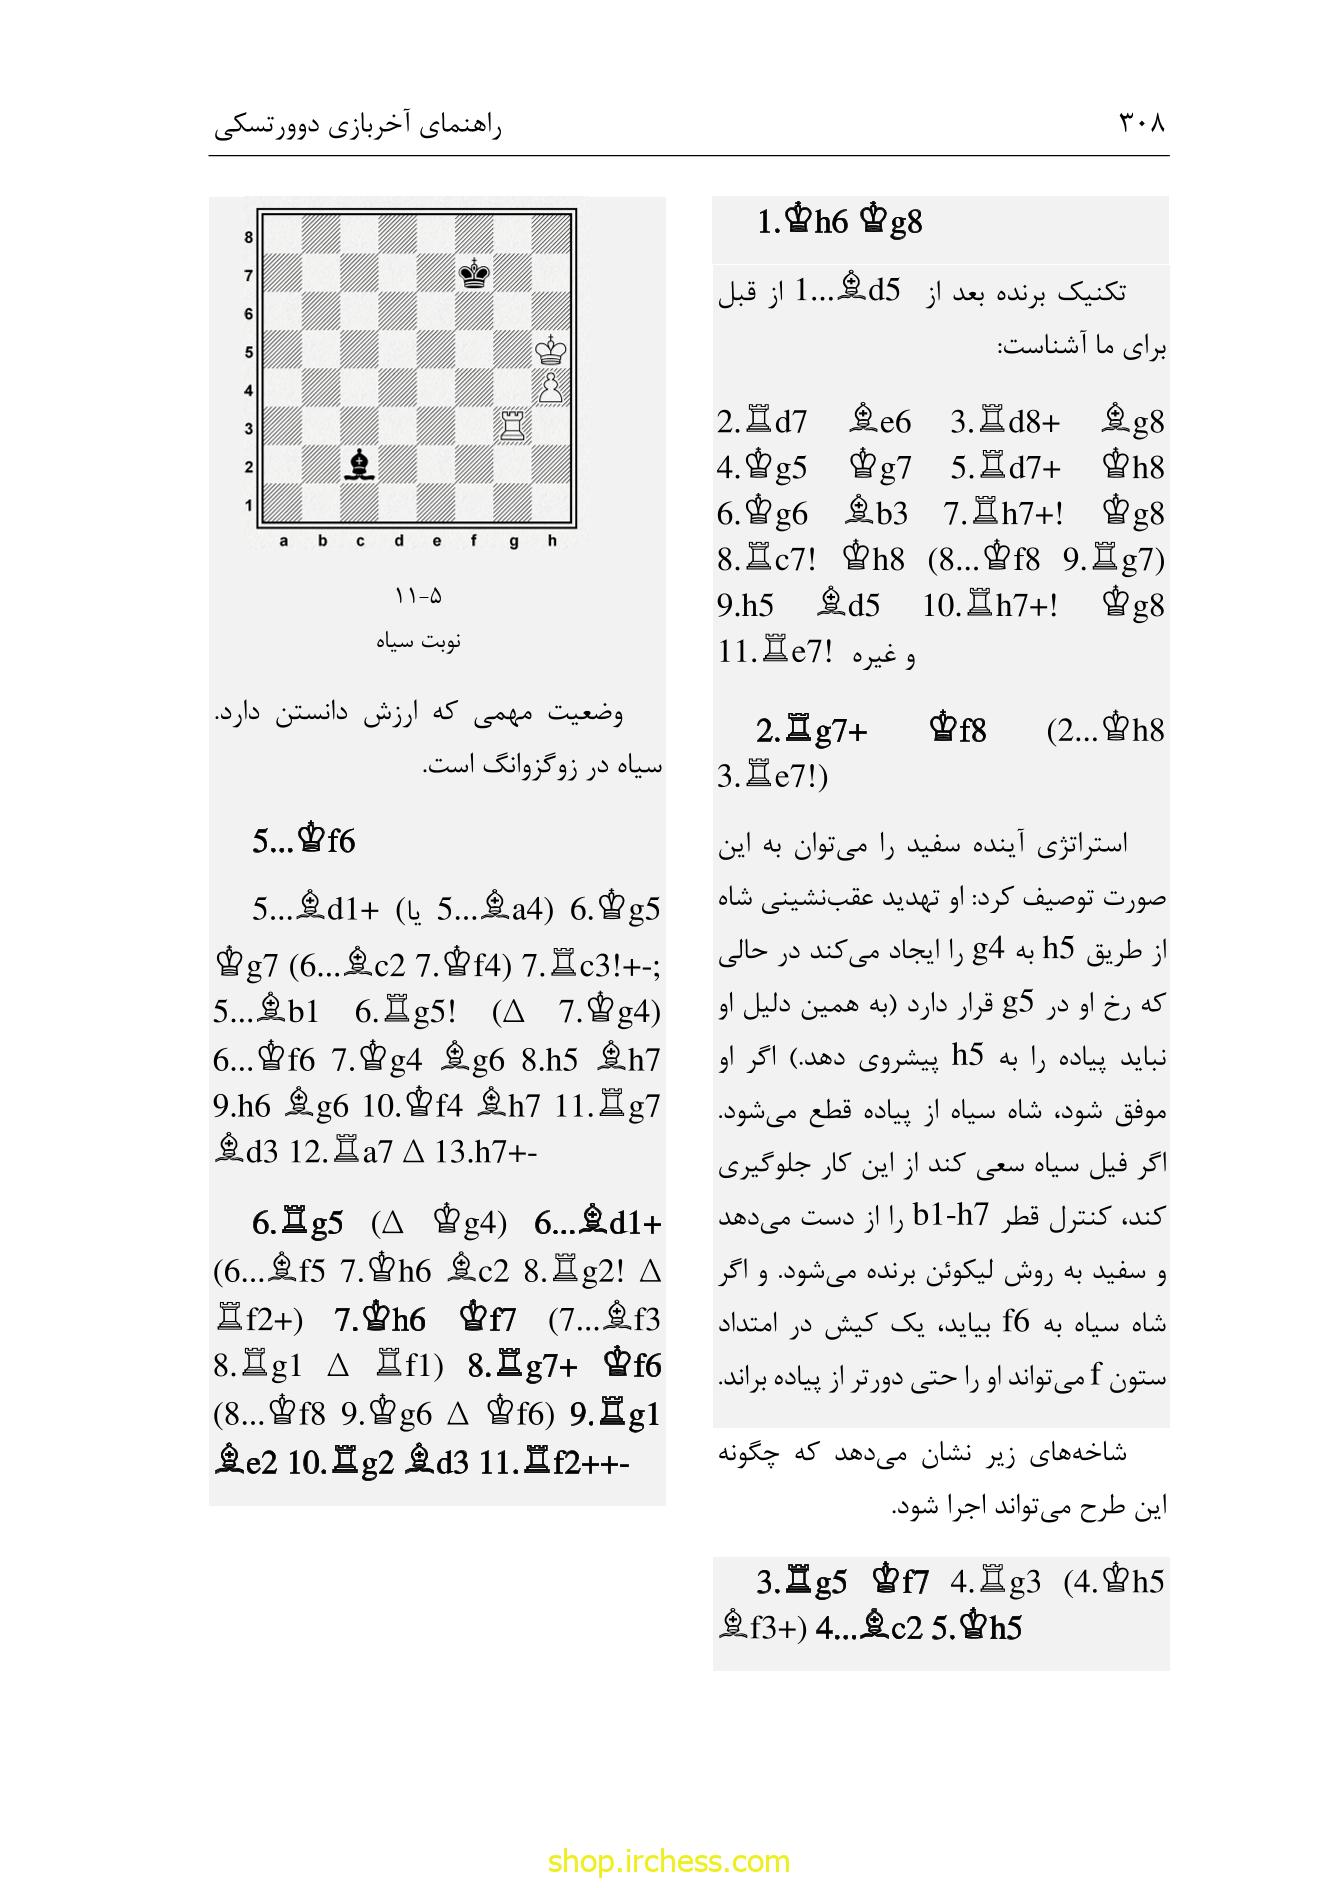 ۳۰۸
راهنمای آخربازی دوورتسکی
1.♔h6 ♔g8
تکنیک برنده بعد از 1...♗d5 از قبل
برای ما آشناست:
2.♖d7 ♗e6 3.♖d8+ ♗g8
4.♔g5 ♔g7 5.♖d7+ ♔h8
6.♔g6 ♗b3 7.♖h7+! ♔g8
8.♖c7! ♔h8 (8...♔f8 9.♖g7)
9.h5 ♗d5 10.♖h7+! ♔g8
11.♖e7! و غیره
2.♖g7+ ♔f8 (2...♔h8
3.♖e7!)
استراتژی آینده سفید را می‌توان به این
صورت توصیف کرد: او تهدید عقب‌نشینی شاه
از طریق h5 به g4 را ایجاد می‌کند در حالی
که رخ او در g5 قرار دارد (به همین دلیل او
نباید پیاده را به h5 پیشروی دهد.) اگر او
موفق شود، شاه سیاه از پیاده قطع می‌شود.
اگر فیل سیاه سعی کند از این کار جلوگیری
کند، کنترل قطر b1-h7 را از دست می‌دهد
و سفید به روش لیکوئن برنده می‌شود. و اگر
شاه سیاه به f6 بیاید، یک کیش در امتداد
ستون f می‌تواند او را حتی دورتر از پیاده براند.
شاخه‌های زیر نشان می‌دهد که چگونه
این طرح می‌تواند اجرا شود.
3.♖g5 ♔f7 4.♖g3 (4.♔h5
♗f3+) 4...♗c2 5.♔h5
8
7
6
5
4
3
2
1
a b c d e f g h
۱۱-۵
نوبت سیاه
وضعیت مهمی که ارزش دانستن دارد.
سیاه در زوگزوانگ است.
5...♔f6
5...♗d1+ (یا 5...♗a4) 6.♔g5
♔g7 (6...♗c2 7.♔f4) 7.♖c3!+-;
5...♗b1 6.♖g5! (Δ 7.♔g4)
6...♔f6 7.♔g4 ♗g6 8.h5 ♗h7
9.h6 ♗g6 10.♔f4 ♗h7 11.♖g7
♗d3 12.♖a7 Δ 13.h7+-
6.♖g5 (Δ ♔g4) 6...♗d1+
(6...♗f5 7.♔h6 ♗c2 8.♖g2! Δ
♖f2+) 7.♔h6 ♔f7 (7...♗f3
8.♖g1 Δ ♖f1) 8.♖g7+ ♔f6
(8...♔f8 9.♔g6 Δ ♔f6) 9.♖g1
♗e2 10.♖g2 ♗d3 11.♖f2++-
shop.irchess.com